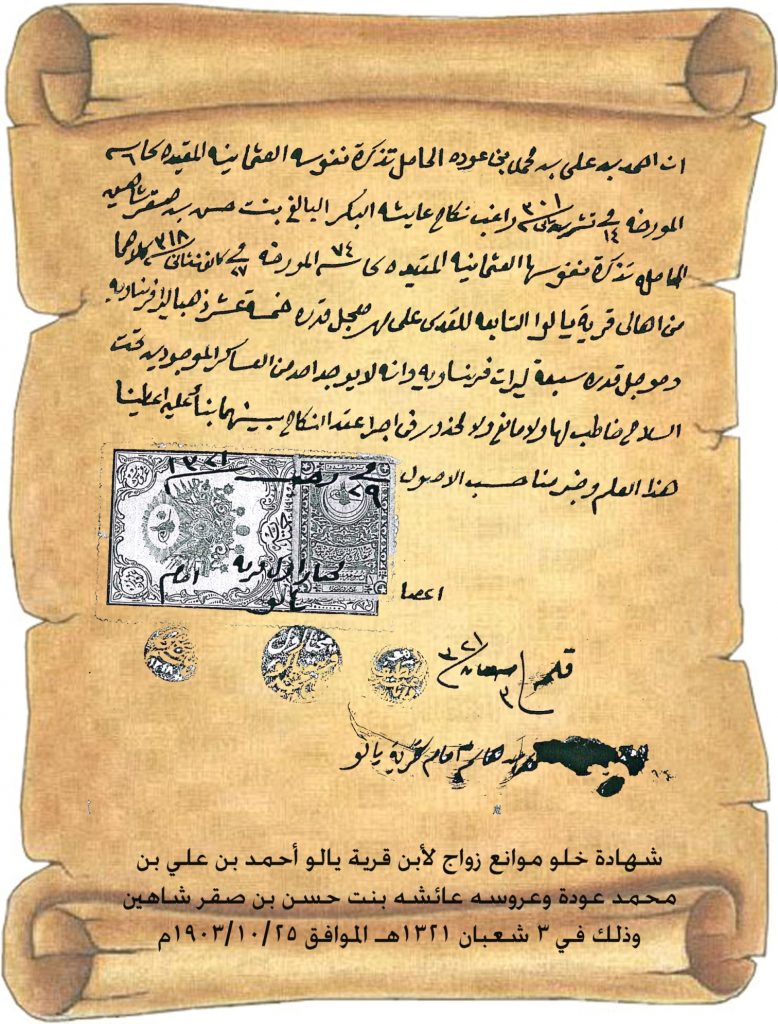 ان احمد بن علي بن محمد بني عوده الحامل تذكرة نفوسه العثمانيه المقيده
المورخة في ١٤ تشرين ٣٠١ راغب نكاح عايشه البكر البالغ بنت حسن بن صقر شاهين
الحامله تذكرة نفوسها العثمانيه المقيده ٧٤ المورخه في ٣١٨ كلاهما
من اهالي قرية يالوا التابعه للقدس على مهر معجل قدره خمسة عشر ذهبا ليرا فرنساويه
وموجل قدره سبعة ليرات فرنساويه وانه لا يوجد احد من العساكر الموجودين تحت
السلاح خاطب لها ولا مانع ولا محذور في اجرا عقد النكاح بينهما بنأ عليه اعطينا
هذا العلم وخبر منا حسب الاصول
في ٢٩ ١٣٢١
اعضا
مختار اول قرية يالو
امام
٣ شعبان ٣٢١
امام قرية يالو
شهادة خلو موانع زواج لأبن قرية يالو أحمد بن علي بن
محمد عودة وعروسه عائشه بنت حسن بن صقر شاهين
وذلك في ٣ شعبان ١٣٢١هـ الموافق ١٩٠٣/١٠/٢٥م